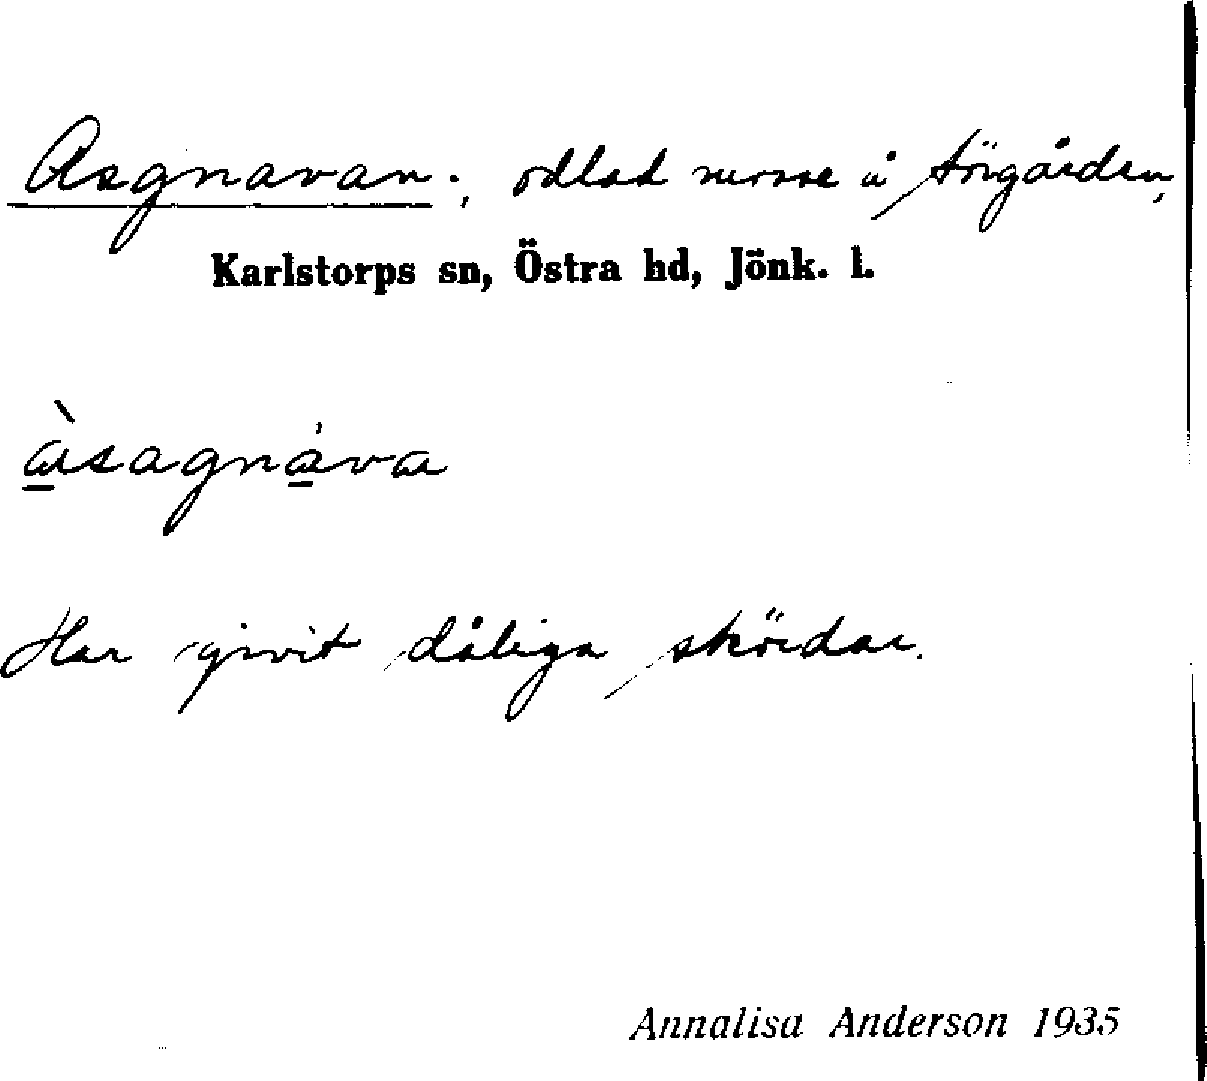 Asgnavan:, odlad mosse å Störgården,
Karlstorps sn, Östra hd, Jönk. l.
àsagnáva
Har givit dåliga skördar.
Annalisa Anderson 1935